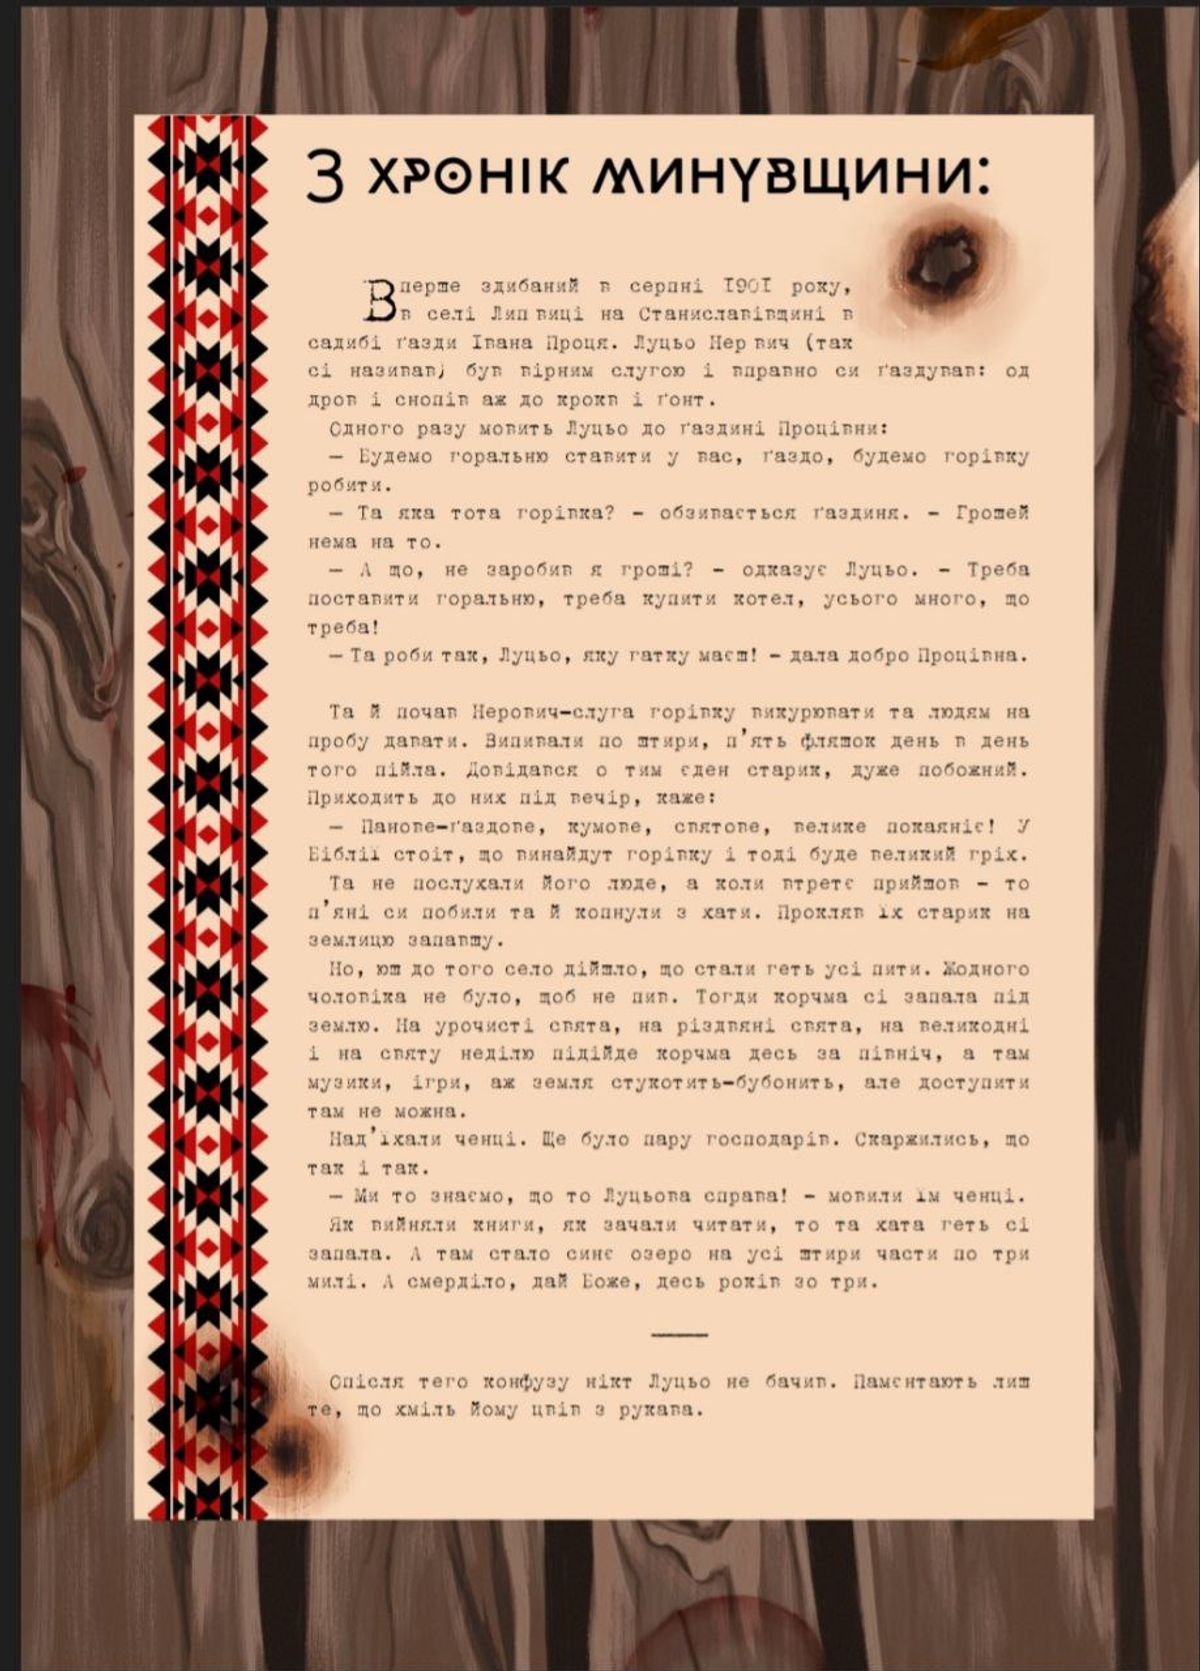 З ХРОНІК МИНУВЩИНИ:
Вперше здибаний в серпні 1901 року,
в селі Липвиці на Станиславівщині в
садибі ґазди Івана Проця. Луцьо Нервич (так
сі називав) був вірним слугою і вправно си ґаздував: од
дров і снопів аж до крокв і ґонт.
Одного разу мовить Луцьо до ґаздині Процівни:
— Будемо горальню ставити у вас, ґаздо, будемо горівку
робити.
— Та яка тота горівка? – обзивається ґаздиня. – Грошей
нема на то.
— А що, не заробив я гроші? – одказує Луцьо. – Треба
поставити горальню, треба купити котел, усього много, що
треба!
— Та роби так, Луцьо, яку гатку маєш! – дала добро Процівна.
Та й почав Нерович-слуга горівку викурювати та людям на
пробу давати. Випивали по штири, п'ять фляшок день в день
того пійла. Довідався о тим єден старик, дуже побожний.
Приходить до них під вечір, каже:
— Панове-ґаздове, кумове, святове, велике покаяніє! У
Біблії стоіт, що винайдут горівку і тоді буде великий гріх.
Та не послухали його люде, а коли втретє прийшов – то
п'яні си побили та й копнули з хати. Прокляв їх старик на
землицю запавшу.
Но, юш до того село дійшло, що стали геть усі пити. Жодного
чоловіка не було, щоб не пив. Тогди корчма сі запала під
землю. На урочисті свята, на різдвяні свята, на великодні
і на святу неділю підійде корчма десь за північ, а там
музики, ігри, аж земля стукотить-бубонить, але доступити
там не можна.
Над'їхали ченці. Ще було пару господарів. Скаржились, що
так і так.
— Ми то знаємо, що то Луцьова справа! – мовили їм ченці.
Як вийняли книги, як зачали читати, то та хата геть сі
запала. А там стало синє озеро на усі штири части по три
милі. А смерділо, дай Боже, десь років зо три.
Опісля тего конфузу нікт Луцьо не бачив. Памєнтають лиш
те, що хміль йому цвів з рукава.